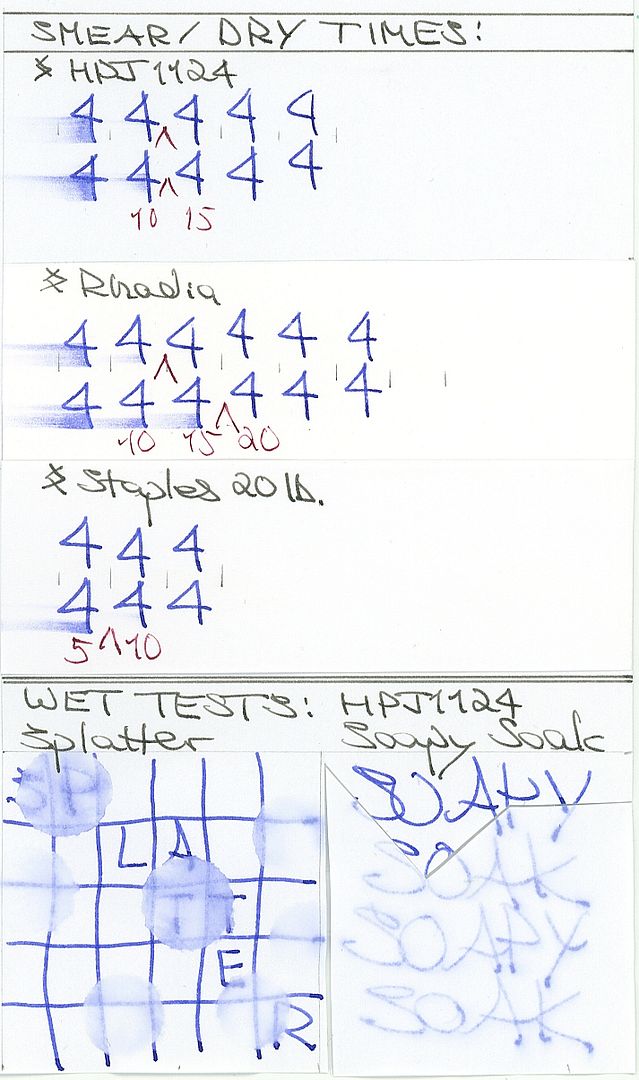 SMEAR/ DRY TIMES:
* HPJ1124
4 4 4 4 4
4 4 4 4 4
10 15
* Rhodia
4 4 4 4 4 4
4 4 4 4 4 4
10 15 20
* Staples 20 lb.
4 4 4
4 4 4
5 10
WET TESTS: HPJ1124
Splatter
SP
L A
T T
E
R
Soapy Soak
SOAPY
SOAK
SOAPY
SOAK